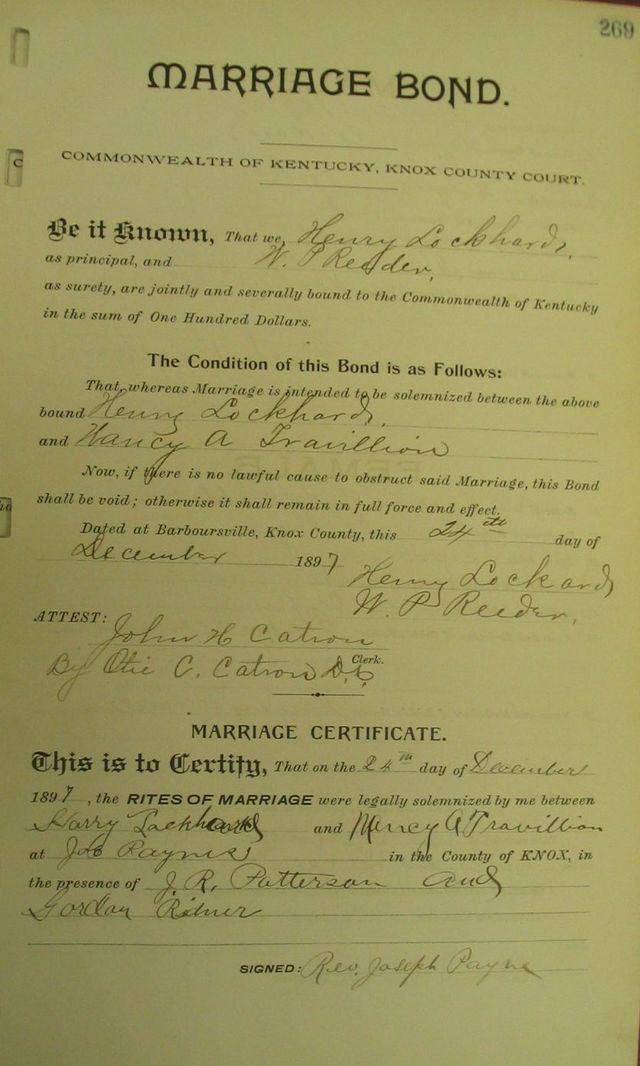 269
MARRIAGE BOND.
COMMONWEALTH OF KENTUCKY, KNOX COUNTY COURT.
Be it Known, That we, Henry Lockhard,
as principal, and W. P Reeder,
as surety, are jointly and severally bound to the Commonwealth of Kentucky
in the sum of One Hundred Dollars.
The Condition of this Bond is as Follows:
That, whereas Marriage is intended to be solemnized between the above
bound Henry Lockhard,
and Nancy A Travillion
Now, if there is no lawful cause to obstruct said Marriage, this Bond
shall be void; otherwise it shall remain in full force and effect.
Dated at Barboursville, Knox County, this 24th day of
December 1897
Henry Lockard
W. P Reeder,
ATTEST:
John H Catron
Clerk.
By Otie C. Catron D.C.
MARRIAGE CERTIFICATE.
This is to Certify, That on the 24th day of December
1897, the RITES OF MARRIAGE were legally solemnized by me between
Harry Lockhard and Nancy A Travillion
at Jos Paynes in the County of KNOX, in
the presence of J. R. Patterson and
Gordon
SIGNED: Rev. Joseph Payne